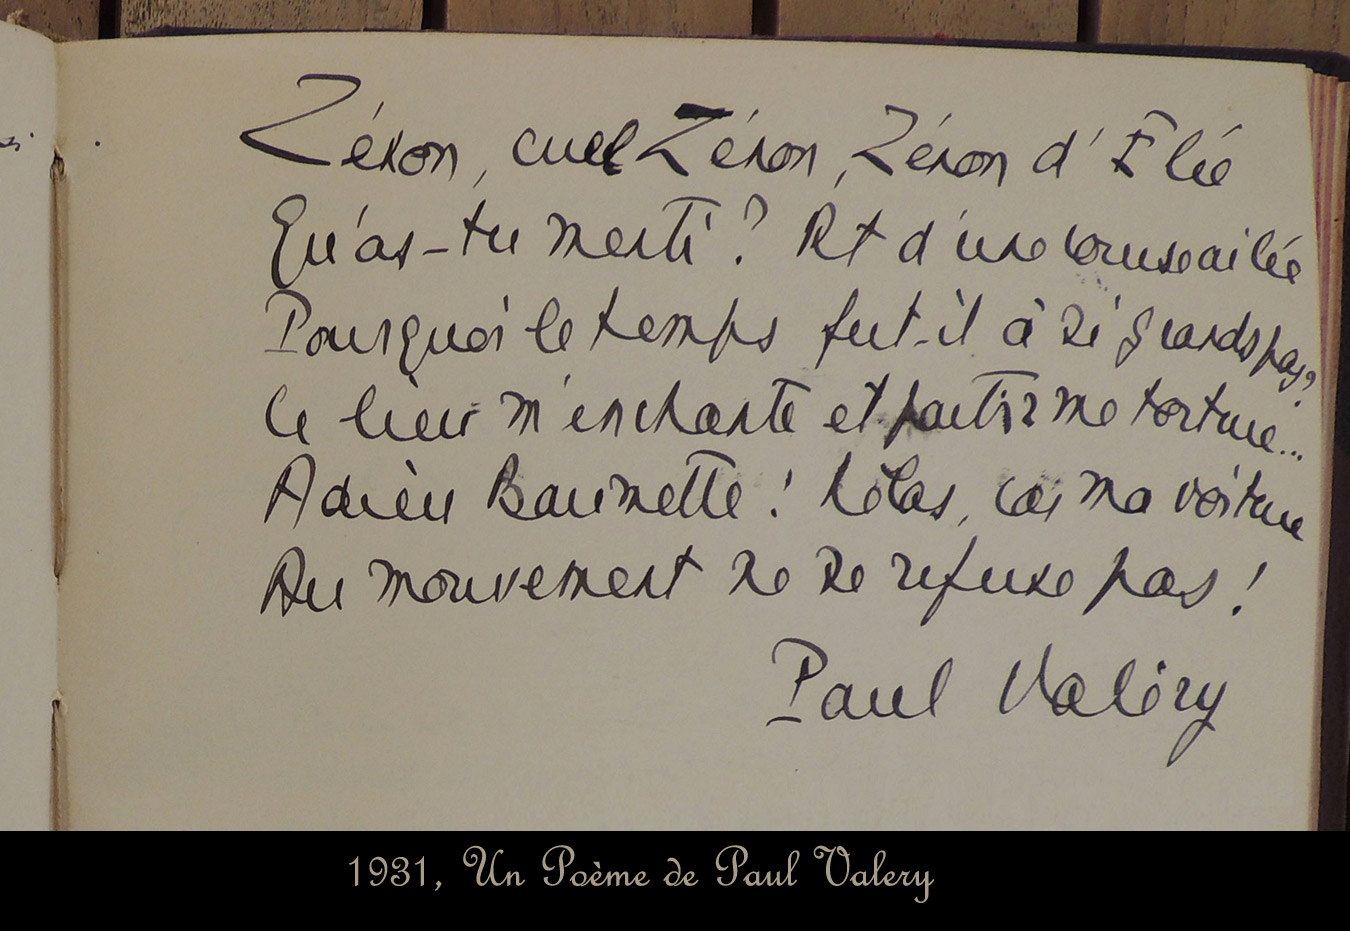 Zénon, cruel Zénon, Zénon d'Élée
Qu'as-tu menti ? Et d'une course ailée
Pourquoi le temps fuit-il à si grands pas ?
Ce lieu m'enchante et partir me torture...
Adieu Baumette ! Hélas, car ma voiture
Au mouvement ne se refuse pas !
Paul Valéry
1931, Un Poème de Paul Valery